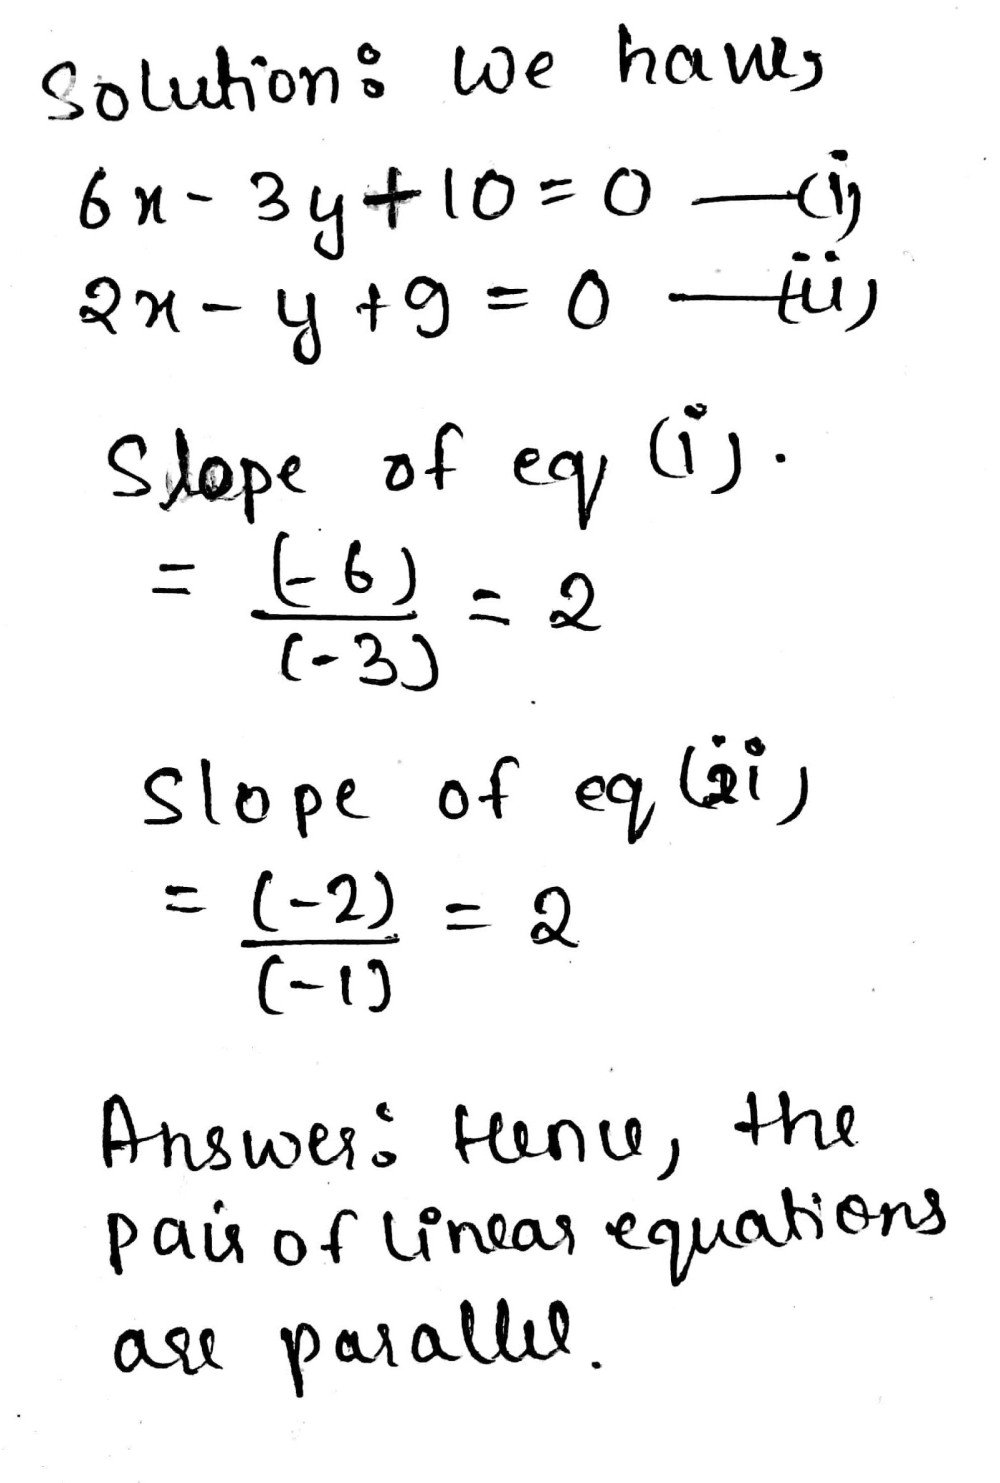 Solution: We have,
6x - 3y + 10 = 0 —(i)
2x - y + 9 = 0 —(ii)
Slope of eq (i).
= (-6)/(-3) = 2
Slope of eq (ii)
= (-2)/(-1) = 2
Answer: Hence, the
pair of linear equations
are parallel.